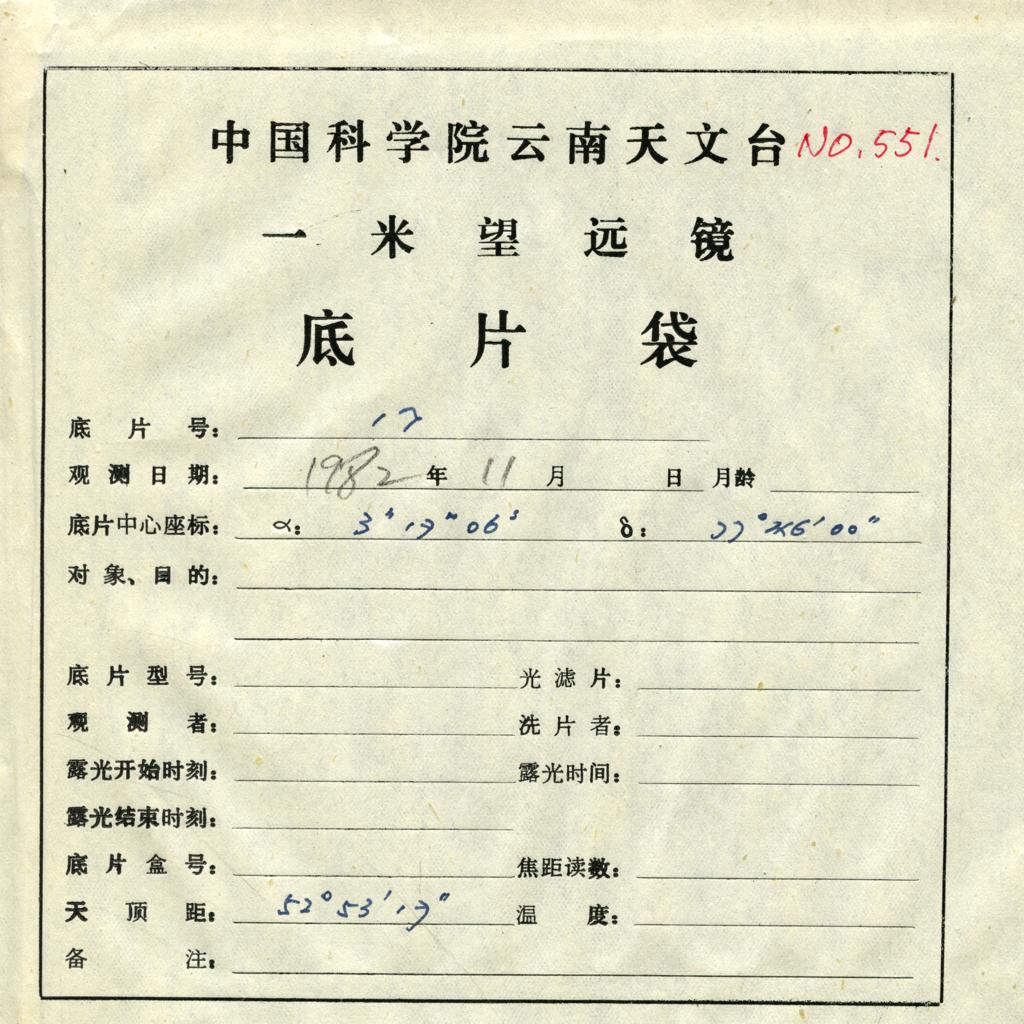 中国科学院云南天文台 NO.551.
一米望远镜
底片袋
底片号: 17
观测日期: 1982年 11月 日 月龄
底片中心座标: α: 3ʰ 17ᵐ 06ˢ δ: 77° 26′ 00″
对象、目的:
底片型号: 光滤片:
观测者: 洗片者:
露光开始时刻: 露光时间:
露光结束时刻:
底片盒号: 焦距读数:
天顶距: 52° 53′ 17″ 温度:
备注: